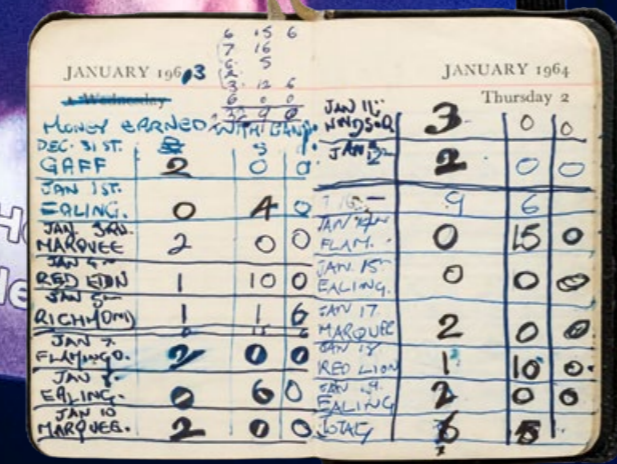 6 15 6
7 16
6 5
JANUARY 1963
3 12 6
6 0 0
Wednesday
MONEY EARNED WITH BAND.
DEC. 31ST.
GAFF 2 0 0
JAN 1ST.
EALING. 0 4 0
JAN. 3RD.
MARQUEE 2 0 0
JAN
RED LION 1 10 0
JAN 5
RICHMOND 1 1 6
JAN 7.
FLAMINGO. 2 0 0
JAN 8
EALING. 0 6 0
JAN 10
MARQUEE. 2 0 0
JANUARY 1964
Thursday 2
JAN 11:
WINDSOR 3 0 0
JAN 12 2 0 0
9 6
JAN 14
FLAM. 0 15 0
JAN 15
EALING. 0 0 0
JAN 17
MARQUEE 2 0 0
JAN 18
RED LION 1 10 0.
JAN 19.
EALING 2 0 0
TOTAL 6 5